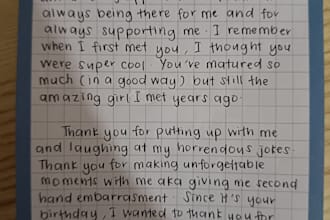 always being there for me and for
always supporting me. I remember
when I first met you, I thought you
were super cool. You've matured so
much (in a good way) but still the
amazing girl I met years ago.
Thank you for putting up with me
and laughing at my horrendous jokes.
Thank you for making unforgettable
moments with me aka giving me second
hand embarrasment. Since it's your
birthday, I wanted to thank you for